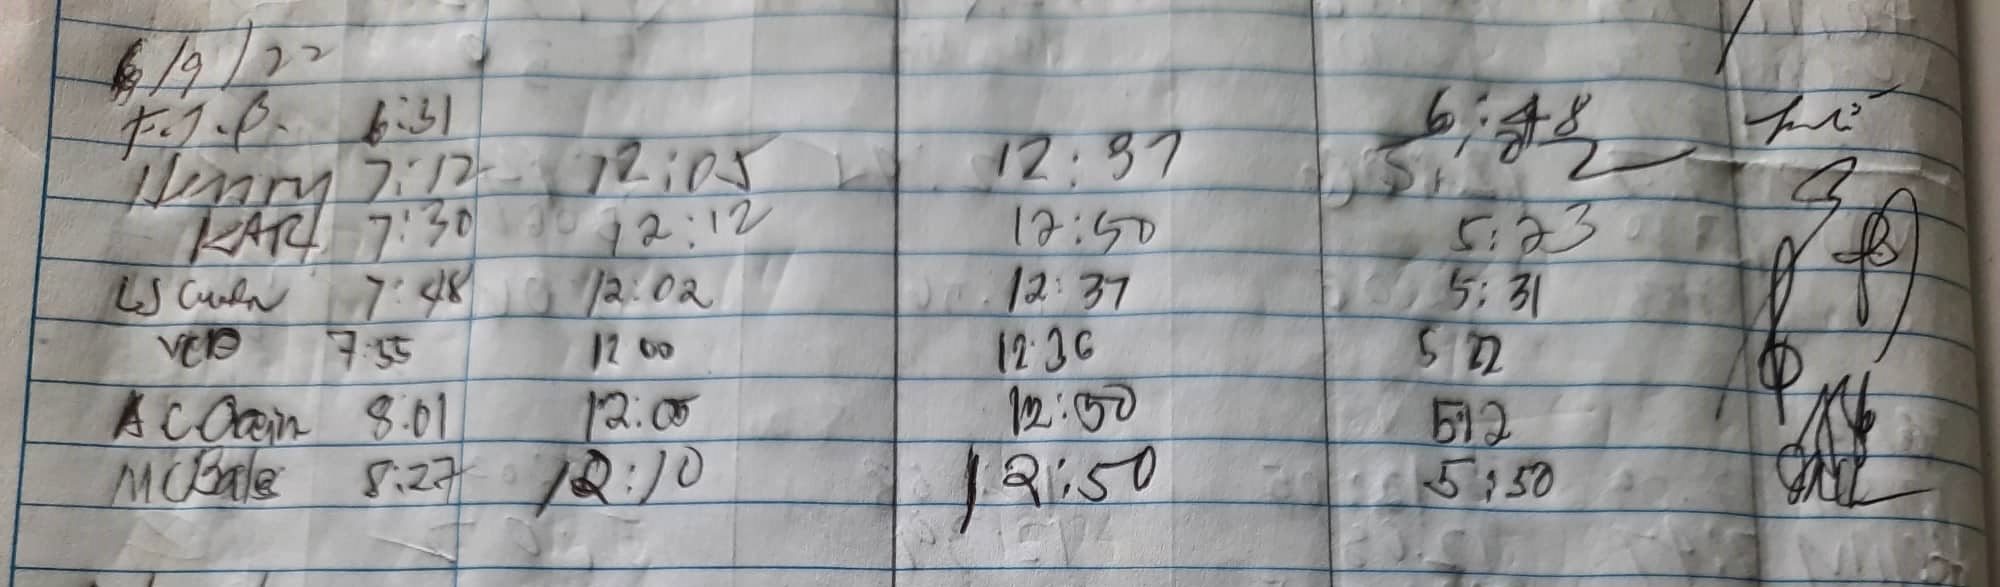 6/9/22
F.J.B. 6:31 6:48
Henry 7:12 12:05 12:37
KAR 7:30 12:12 12:50 5:23
7:48 12:02 12:37 5:31
VCD 7:55 12 00 12:36 5 22
A C 8:01 12:00 12:50 5:12
MCBale 8:27 12:10 12:50 5:50